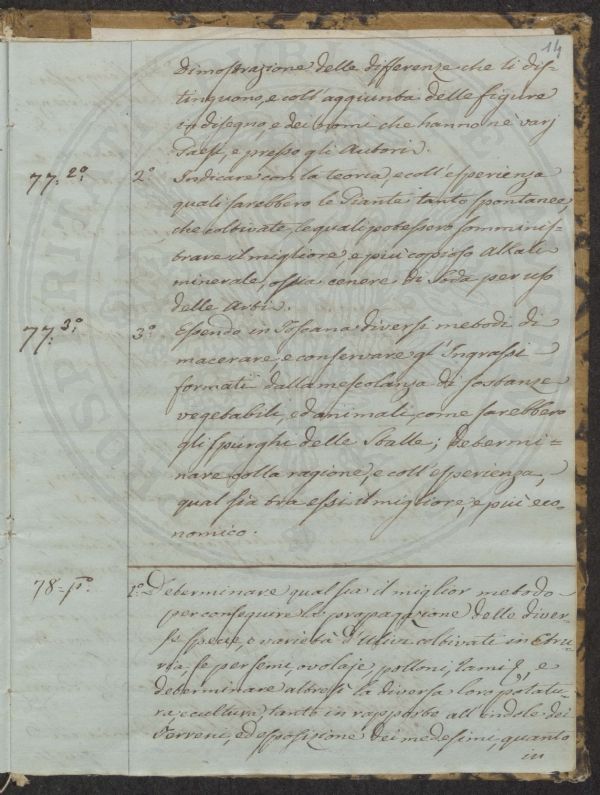 14
Dimostrazione delle differenze che li dis-
tinguono, e coll'aggiunta delle figure
in disegno, e dei nomi che hanno ne varj
Paesi, e presso gli Autori.
77. 2º 2º Indicare con la teoria, e coll'esperienza
quali sarebbero le Piante tanto spontanee,
che coltivate, le quali potessero somminis-
trare il migliore, e più copioso Alkali
minerale, ossia cenere di Soda per uso
delle Arti.
77. 3º 3º Essendo in Toscana diversi metodi di
macerare, e conservare gl'Ingrassi
formati dalla mescolanza di sostanze
vegetabili, ed animali, come sarebbero
gli spurghi delle Stalle; Determi=
nare colla ragione, e coll'esperienza,
qual sia tra essi il migliore, e più eco-
nomico.
78= pº. 1º Determinare qual sia il miglior metodo
per conseguire la propagazione delle diver-
se specie, o varietà d'Ulivi coltivati in Etru-
ria, se per semi, ovolaje, polloni, rami &, e
determinare altresì la diversa loro potatu-
ra, e cultura, tanto in rapporto all'indole dei
Terreni, ed esposizione dei medesimi, quanto
in